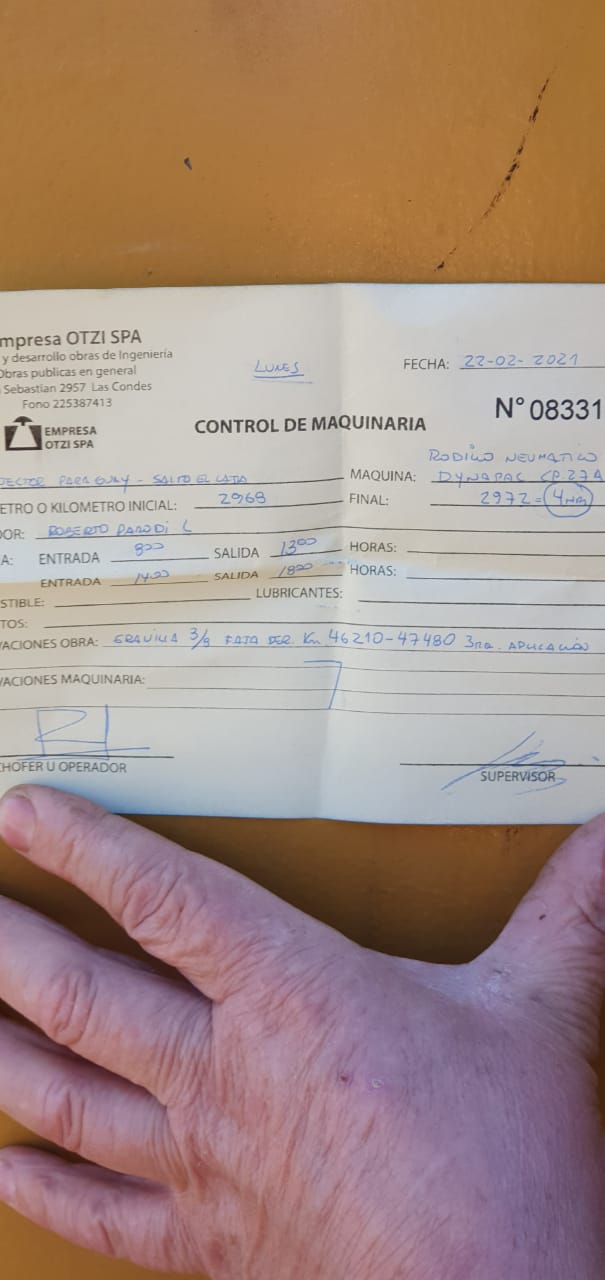 mpresa OTZI SPA
y desarrollo obras de Ingeniería
Obras publicas en general
Sebastian 2957 Las Condes
Fono 225387413
EMPRESA
OTZI SPA
LUNES
FECHA: 22-02-2021
N° 08331
CONTROL DE MAQUINARIA
ECTOR PARAGUAY - SALTO EL LAJA
RODILLO NEUMATICO
MAQUINA: DYNAPAC CP.27A
ETRO O KILOMETRO INICIAL: 2968 FINAL: 2972 = 4 HRS
DOR: ROBERTO PARODI L
A: ENTRADA 800 SALIDA 1300 HORAS:
ENTRADA 1400 SALIDA 1800 HORAS:
STIBLE: LUBRICANTES:
TOS:
VACIONES OBRA: GRAVILLA 3/8 FAJA DER. Km 46210-47480 3RA. APLICACIÓN
VACIONES MAQUINARIA:
CHOFER U OPERADOR SUPERVISOR